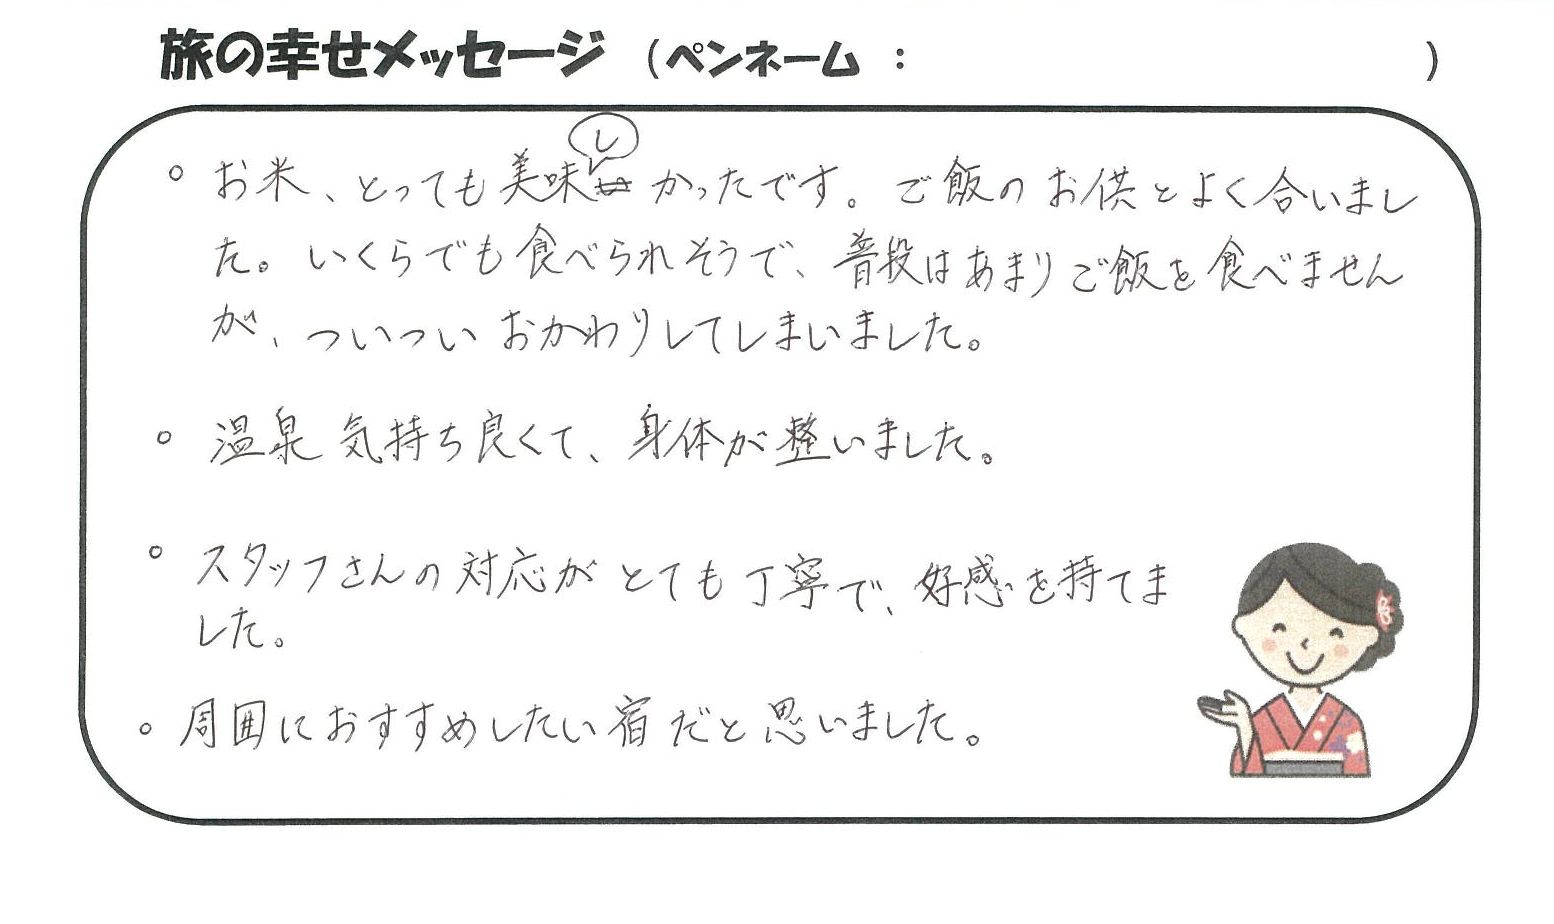 旅の幸せメッセージ （ペンネーム ： ）
。お米、とっても美味しかったです。ご飯のお供とよく合いまし
た。いくらでも食べられそうで、普段はあまりご飯を食べません
が、ついついおかわりしてしまいました。
。温泉気持ち良くて、身体が整いました。
。スタッフさんの対応がとても丁寧で、好感を持てま
した。
。周囲におすすめしたい宿だと思いました。